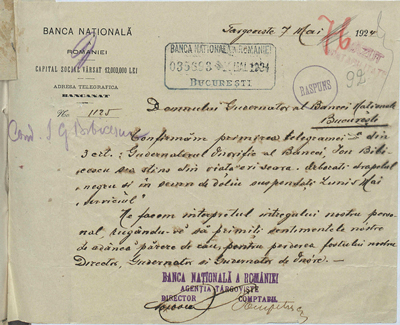 BANCA NAȚIONALĂ
A
ROMANIEI
CAPITAL SOCIAL VĂRSAT 12,000,000 LEI
ADRESA TELEGRAFICA
BANCANAT
No. 1125
Targoviste 7 Mai 1924
76
BANCA NATIONALA A ROMANIEI
BUCUREȘTI
RASPUNS
92
Domnului Guvernator al Bancei Nationale
Bucuresti
Confirmăm primirea telegramei din
3 crt.: Guvernatorul Onorific al Bancei, Ion Bibi-
cescu s'a stins din viata eri seara. Arborati drapelul
negru si in semn de doliu suspendati Luni 5 Mai
serviciul"
Ne facem interpretul intregului nostru perso-
nal, rugându-vă să primiti sentimentele noastre
de adâncă părere de rău, pentru perderea fostului nostru
Director, Guvernator si Guvernator de Onore.—
BANCA NAȚIONALĂ A ROMÂNIEI
AGENȚIA TARGOVIȘTE
DIRECTOR CONTABIL